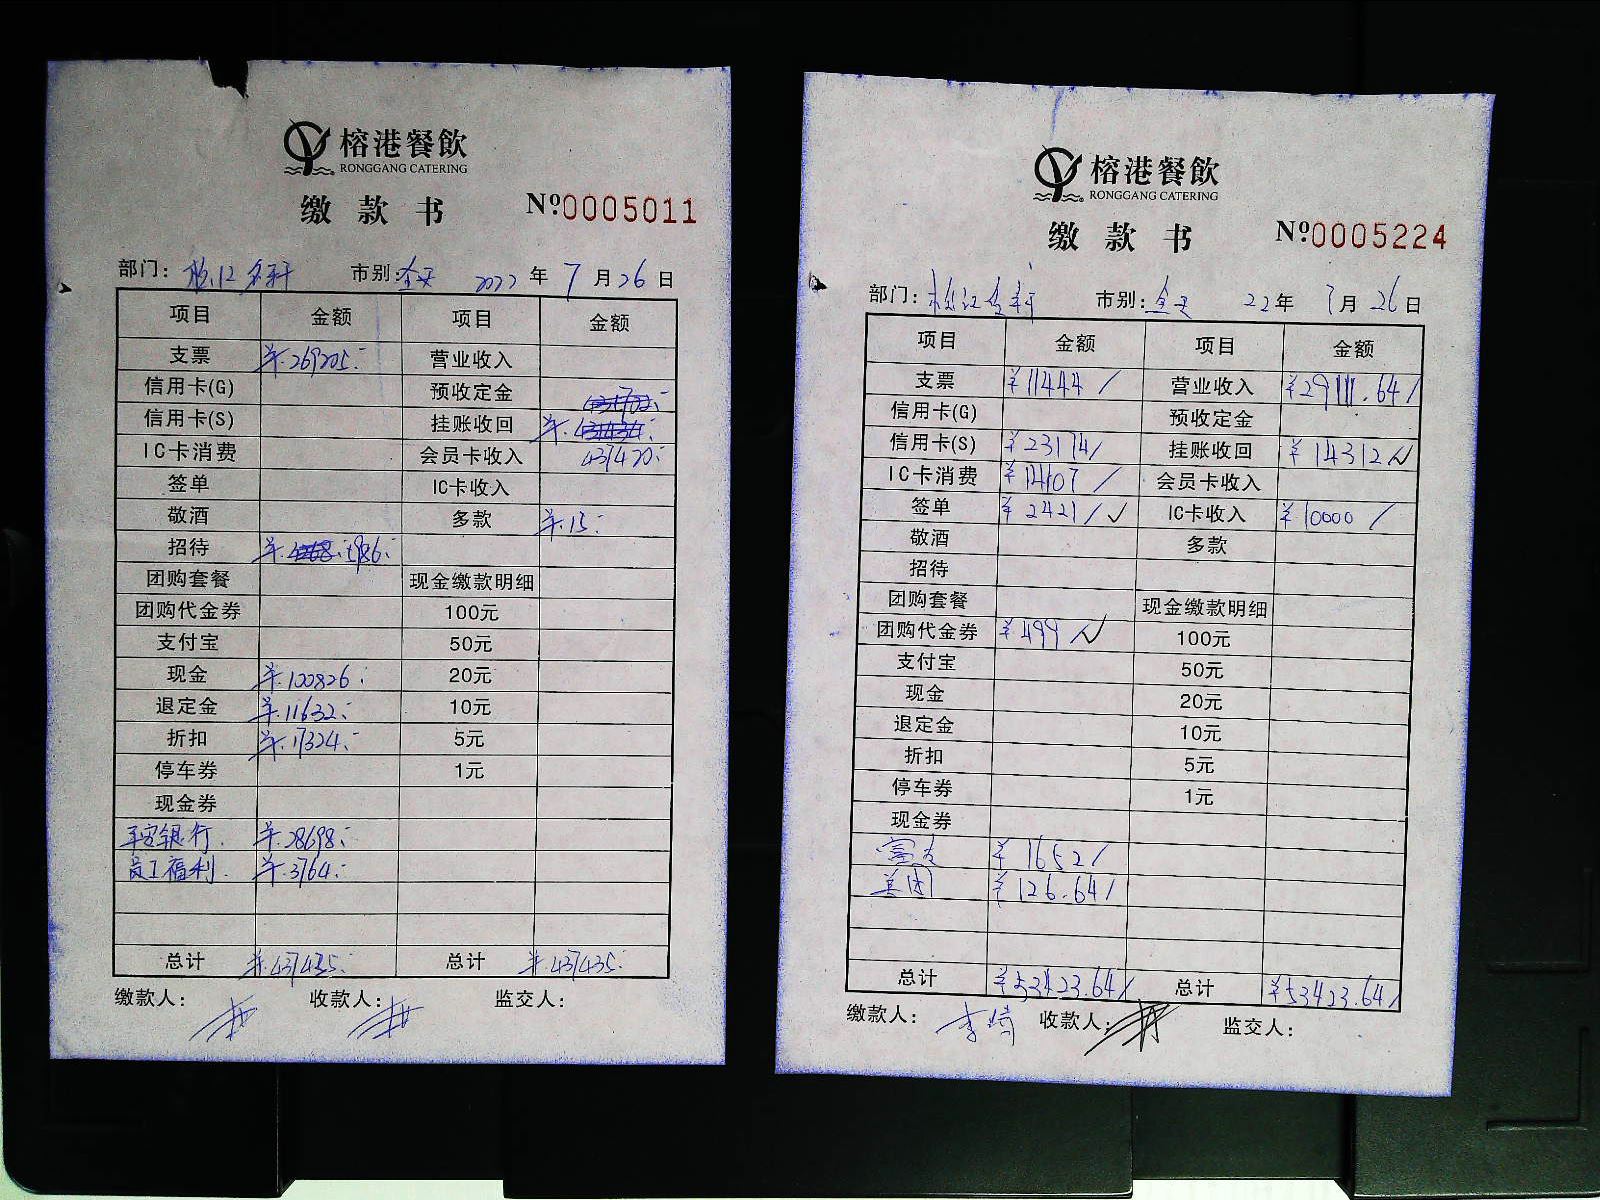 榕港餐飲
RONGGANG CATERING
缴 款 书 Nº0005011
部门： 市别：全天 2022 年 7 月 26 日
项目 金额 项目 金额
支票 ¥.269205.- 营业收入
信用卡(G) 预收定金
信用卡(S) 挂账收回 ¥.
IC卡消费 会员卡收入 437420.-
签单 IC卡收入
敬酒 多款 ¥.15.-
招待 ¥. 5986.-
团购套餐 现金缴款明细
团购代金券 100元
支付宝 50元
现金 ¥.100826.- 20元
退定金 ¥.11632.- 10元
折扣 ¥.17324.- 5元
停车券 1元
现金券
平安银行. ¥.28698.-
员工福利. ¥.3764.-
总计 ¥.437435.- 总计 ¥.437435.-
缴款人： 收款人： 监交人：
榕港餐飲
RONGGANG CATERING
缴 款 书 Nº0005224
部门： 市别：全天 22 年 7 月 26 日
项目 金额 项目 金额
支票 ¥11444/ 营业收入 ¥29111.64/
信用卡(G) 预收定金
信用卡(S) ¥23174/ 挂账收回 ¥14312/✓
IC卡消费 ¥14107/ 会员卡收入
签单 ¥2421/✓ IC卡收入 ¥10000/
敬酒 多款
招待
团购套餐 现金缴款明细
团购代金券 ¥499/✓ 100元
支付宝 50元
现金 20元
退定金 10元
折扣 5元
停车券 1元
现金券
富友 ¥1652/
美团 ¥126.64/
总计 ¥53423.64/ 总计 ¥53423.64/
缴款人： 收款人： 监交人：